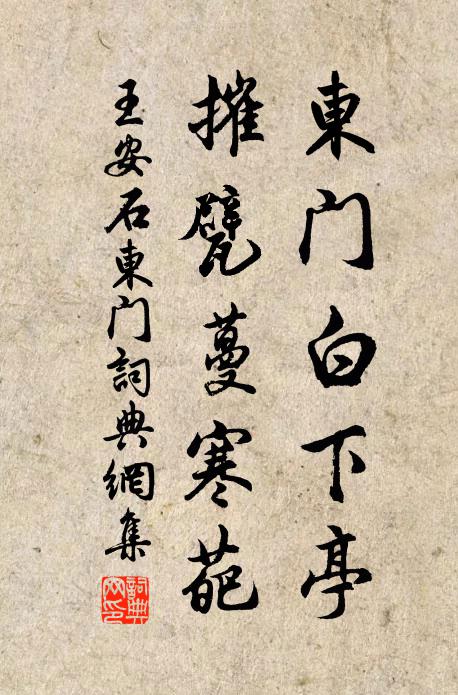 東門白下亭
摧甓蔓寒葩
王安石東門詞典網集
詞典網印